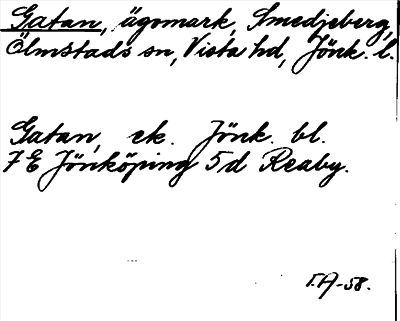 Gatan, ägomark, Smedjeberg,
Ölmstads sn, Vista hd, Jönk. l.
Gatan, ek. Jönk. bl.
7E Jönköping 5d Reaby.
T.A-58.